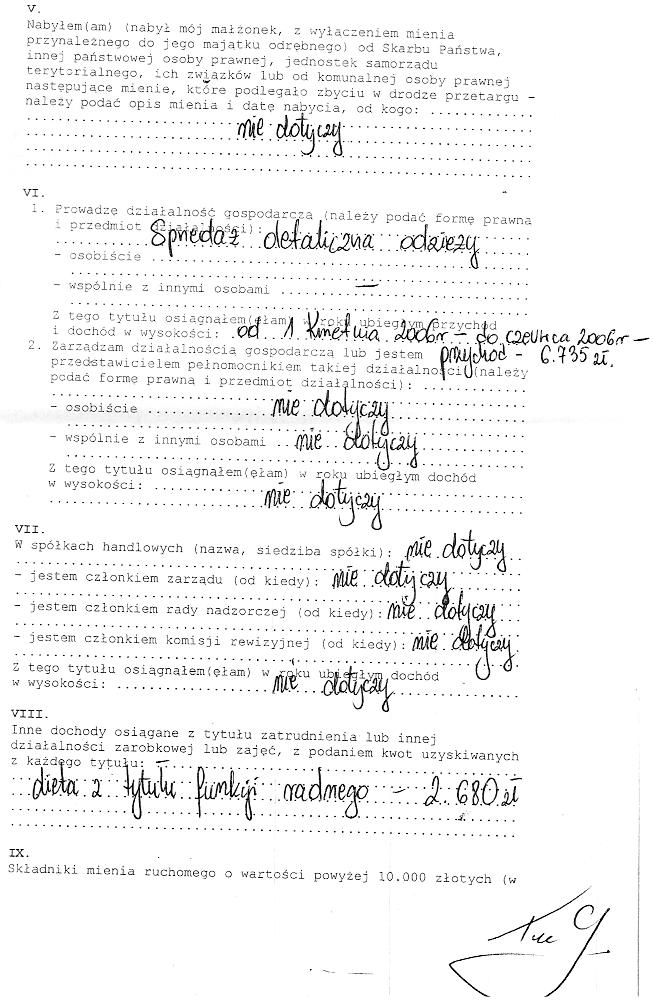 V.
Nabyłem(am) (nabył mój małżonek, z wyłączeniem mienia
przynależnego do jego majątku odrębnego) od Skarbu Państwa,
innej państwowej osoby prawnej, jednostek samorządu
terytorialnego, ich związków lub od komunalnej osoby prawnej
następujące mienie, które podlegało zbyciu w drodze przetargu –
należy podać opis mienia i datę nabycia, od kogo: .............
nie dotyczy
VI.
1. Prowadzę działalność gospodarczą (należy podać formę prawną
i przedmiot działalności):
Sprzedaż detaliczna odzieży
– osobiście
– wspólnie z innymi osobami —
Z tego tytułu osiągnąłem(ęłam) w roku ubiegłym przychód
i dochód w wysokości: od 1 kwietnia 2006r – do czerwca 2006r –
przychód – 6.735 zł.
2. Zarządzam działalnością gospodarczą lub jestem
przedstawicielem pełnomocnikiem takiej działalności (należy
podać formę prawną i przedmiot działalności):
– osobiście nie dotyczy
– wspólnie z innymi osobami nie dotyczy
Z tego tytułu osiągnąłem(ęłam) w roku ubiegłym dochód
w wysokości: nie dotyczy
VII.
W spółkach handlowych (nazwa, siedziba spółki): nie dotyczy
– jestem członkiem zarządu (od kiedy): nie dotyczy
– jestem członkiem rady nadzorczej (od kiedy): nie dotyczy
– jestem członkiem komisji rewizyjnej (od kiedy): nie dotyczy
Z tego tytułu osiągnąłem(ęłam) w roku ubiegłym dochód
w wysokości: nie dotyczy
VIII.
Inne dochody osiągane z tytułu zatrudnienia lub innej
działalności zarobkowej lub zajęć, z podaniem kwot uzyskiwanych
z każdego tytułu:
dieta z tytułu funkcji radnego – 2.680 zł
IX.
Składniki mienia ruchomego o wartości powyżej 10.000 złotych (w